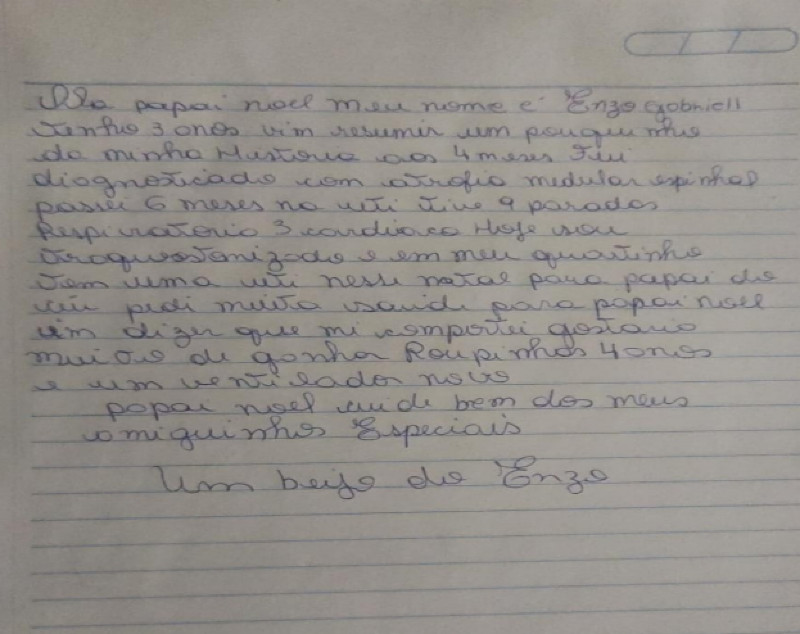 Olá papai noel meu nome é Enzo gabriell
tenho 3 anos vim resumir um pouquinho
da minha Historia aos 4 meses fui
diagnosticado com atrofia medular espinhal
passei 6 meses na uti tive 9 paradas
Respiratoria 3 cardiaca Hoje sou
traqueostomizado e em meu quartinho
tem uma uti nesse natal para papai do
céu pedi muita saude para papai noel
vim dizer que mi comportei gostaria
muito de ganha Roupinhas 4 anos
e um ventilador novo
papai noel cuide bem dos meus
amiguinhos Especiais
Um beijo do Enzo